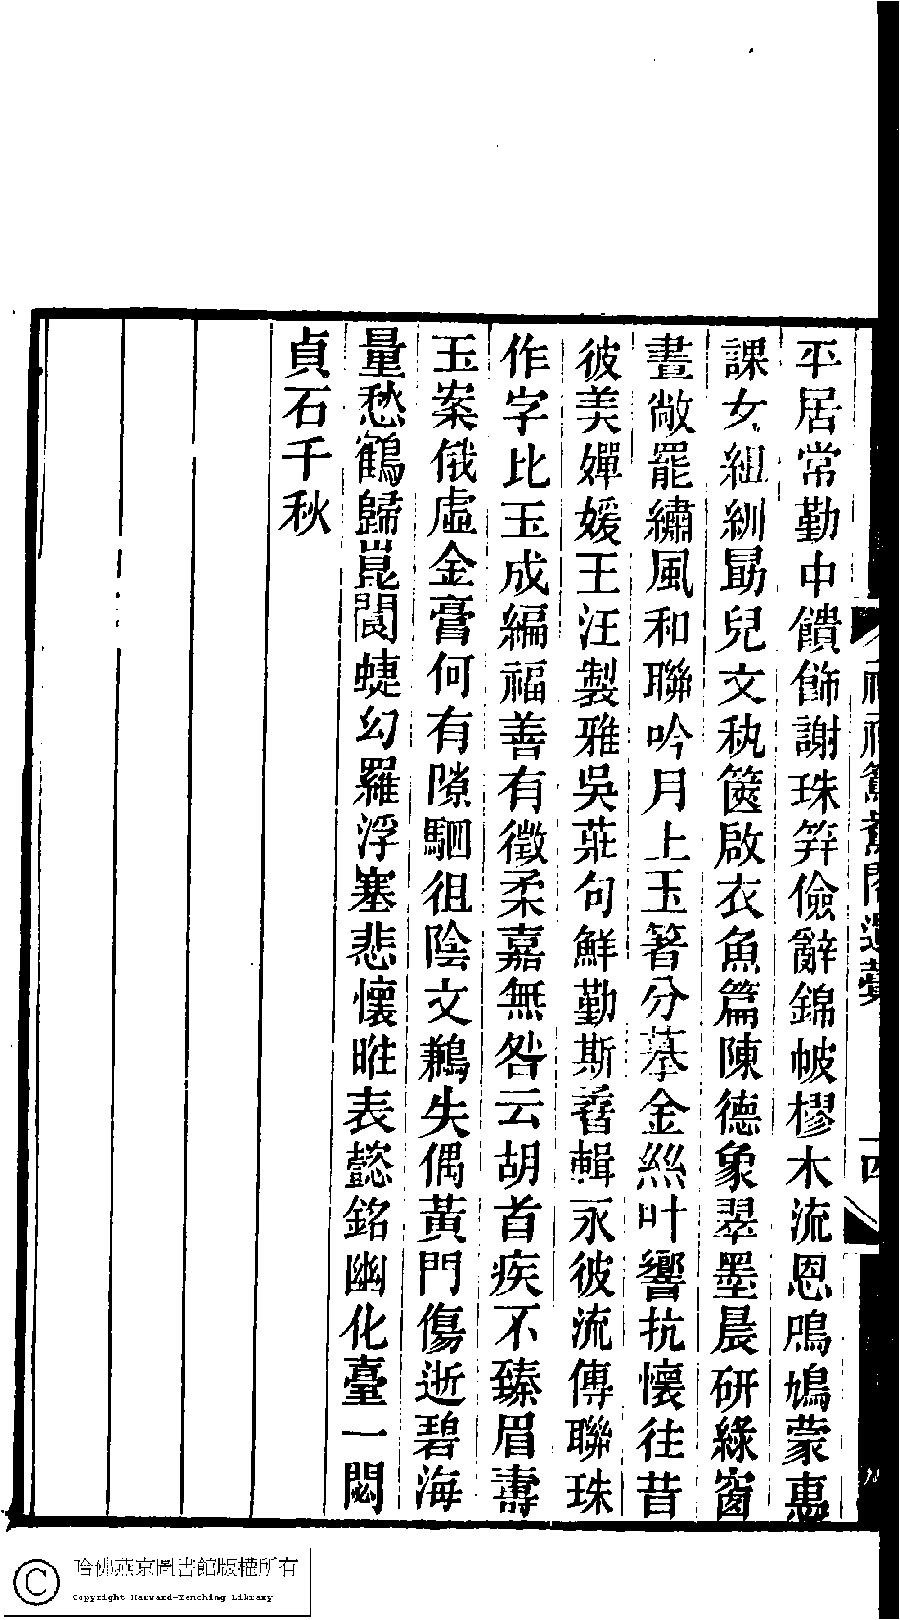 平居常勤中饋飾謝珠笄儉辭錦帔樛木流恩鳲鳩蒙惠
課女組紃勗兒文秇篋啟衣魚篇陳德象翠墨晨研綠窗
晝敞罷繡風和聯吟月上玉箸分摹金絲叶響抗懷往昔
彼美嬋媛王汪製雅吳莊句鮮勤斯蒼輯永彼流傳聯珠
作字比玉成編福善有徵柔嘉無咎云胡首疾不臻眉壽
玉案俄虛金膏何有隙駟徂陰文鶼失偶黃門傷逝碧海
量愁鶴歸崑閬蜨幻羅浮塞悲懷睢表懿銘幽化臺一閟
貞石千秋
福禄鴛鴦閣遺藁
十四
哈佛燕京圖書館版權所有
Copyright Harvard-Yenching Library